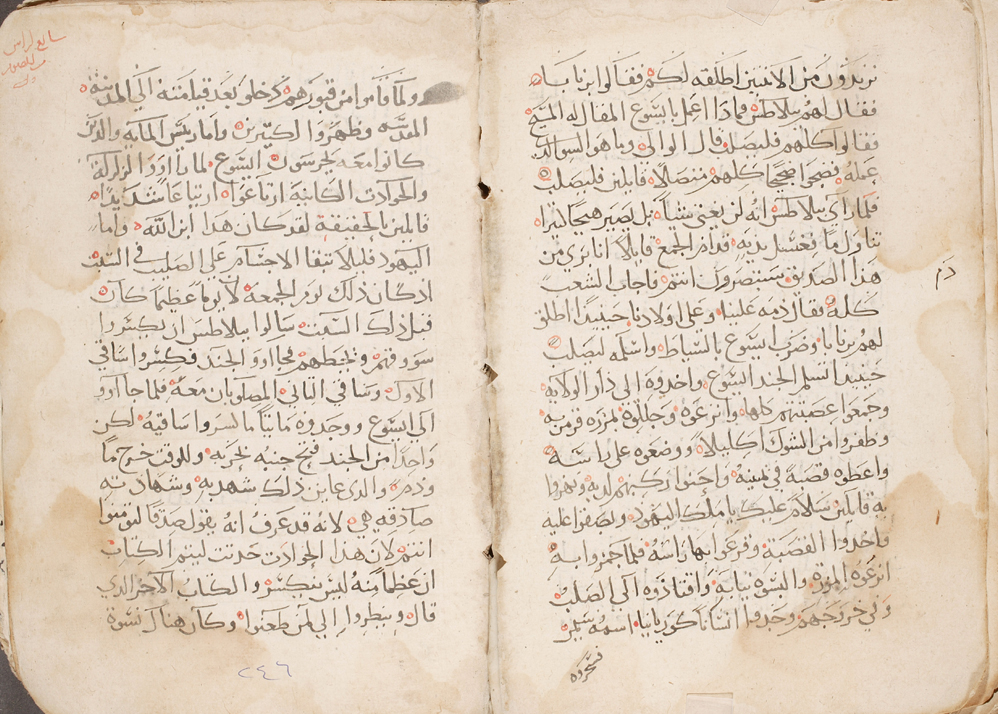 تريدون من الاثنين اطلقه لكم فقالوا برنابا
فقال لهم بيلاطس فماذا اعمل بايسوع المقال له المسيح
فقالوا كلهم فليصلب قال الوالي وما هو السو الذي
عمله فضجوا ضجيجا كلهم متصلا قايلين فليصلب
فلما راى بيلاطس انه لن يغني شيا بل يصير هيجا كثيرا
تناول ما فغسل يديه قدام الجمع قايلا انا بري من
هذا الصديق ستنصرون انتم فاجاب الشعب
كله فقال دمه علينا وعلى اولادنا حينيدا اطلق
لهم برنابا وضرب ايسوع بالسياط واسلمه ليصلب
حينيدا استلم الجند ايسوع واخدوه الى دار الولايه
وجمعوا عصبتهم كلها وانزعوه وجللوه بمزره قرمزيه
وظفروا من الشوك اكليلا ووضعوه على راسه
واعطوه قصبة في يمينه واحنوا ركبهم لديه وتهزوا
به قايلين سلام عليك يا ملك اليهود وبصقوا عليه
واخدوا القصبة وقرعوا بها راسه فلما اجهزوا به
انزعوه المزره والبسوه ثيابه واقتادوه الى الصلب
وفي خروجهم وجدوا انسانا كورينانيا اسمه
فسخروه
دم
سابع
ولما قاموا من قبورهم دخلوا بعد قيامته الى المدينة
المقدسه وظهروا لكثيرين واما رييس المايه والدين
كانوا معه يحرسون ايسوع لما راوا الزلزلة
والحوادت الكاينة ارتاعوا ارتياعا شديدا
قايلين بالحقيقة لقد كان هدا ابن الله واما
اليهود فليلا تبقا الاجسام على الصليب في السبت
اد كان دلك يوم الجمعة لان يوما عظيما كان
دلك السبت سالوا بيلاطس ان يكسروا
سوقهم ويحطهم فجااوا الجند فكسروا ساقي
الاول وساقي التاني المصلوبان معه فلما جااوا
الى ايسوع ووجدوه مايتا ما كسروا ساقيه لكن
واحدا من الجند فتح جنبه بحربه وللوقت خرج ما
ودم والدي عاين دلك شهد به وشهادته
صادقه هي لانه قد عرف انه يقول صدقا لتومنوا
انتم لان هدا الحوادت حدتت ليتم الكتاب
ان عظما منه ليس ينكسر والكتاب الاخر الدي
قال وينظروا الى من طعنوا وكان هناك نسوة
٢٤٦